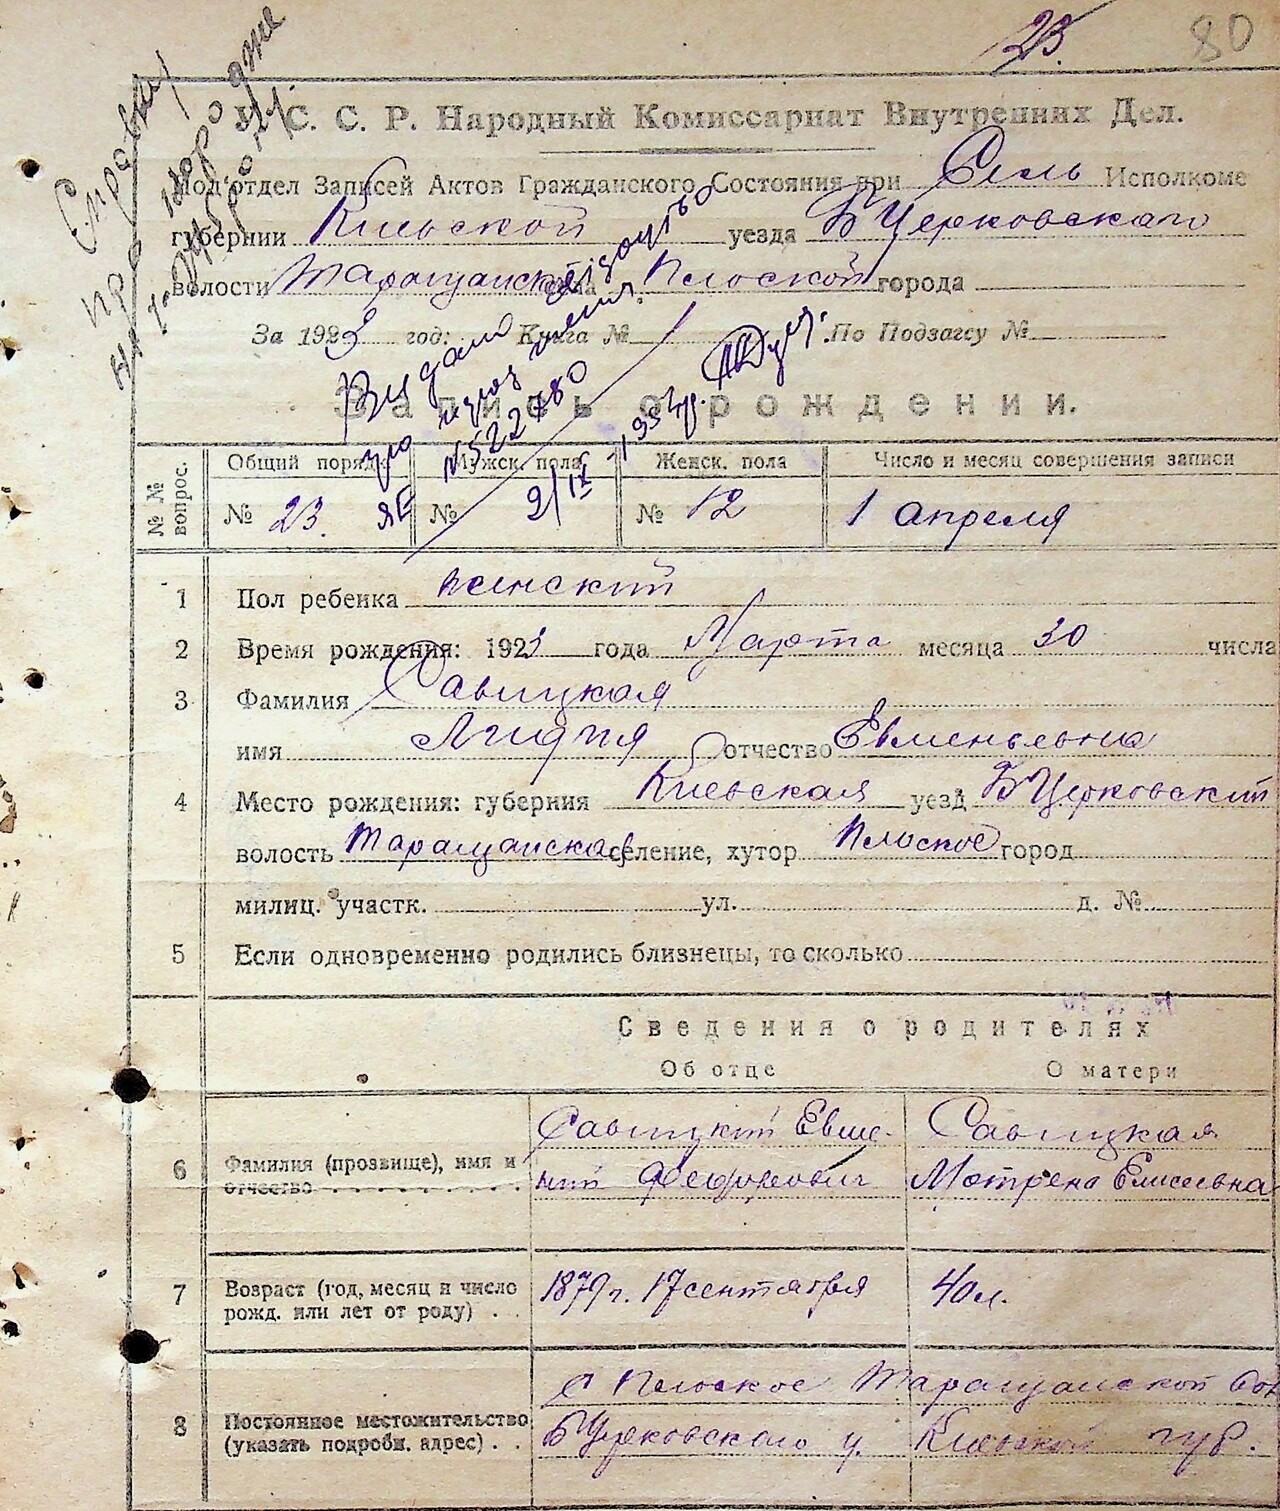 23.
80
У. С. С. Р. Народный Комиссариат Внутренних Дел.
Под'отдел Записей Актов Гражданского Состояния при Сель Исполкоме
губернии Киевской уезда БЦерковского
волости Таращанской села Плоской города
За 1923 год: Книга № По Подзагсу №
Запись о рождении.
Видано свідоцтво
про народження
№522780
2/IX -1933р.
№ № вопрос.
Общий поряд. Мужск. пола Женск. пола Число и месяц совершения записи
№ 23. № № 12 1 апреля
1 Пол ребенка женский
2 Время рождения: 1923 года Марта месяца 30 числа
3 Фамилия Савицкая
имя Лидия отчество Евменьевна
4 Место рождения: губерния Киевская уезд БЦерковский
волость Таращанская селение, хутор Плоское город
милиц. участк. ул. д. №
5 Если одновременно родились близнецы, то сколько
Сведения о родителях
Об отце О матери
6 Фамилия (прозвище), имя и отчество
Савицкий Евме-
ний Федорович
Савицкая
Мотрена Елисеевна
7 Возраст (год, месяц и число рожд. или лет от роду)
1879г. 17 сентября 40 л.
8 Постоянное местожительство (указать подробн. адрес)
С Плоское Таращанской Вол
БЦерковского у. Киевской губ.